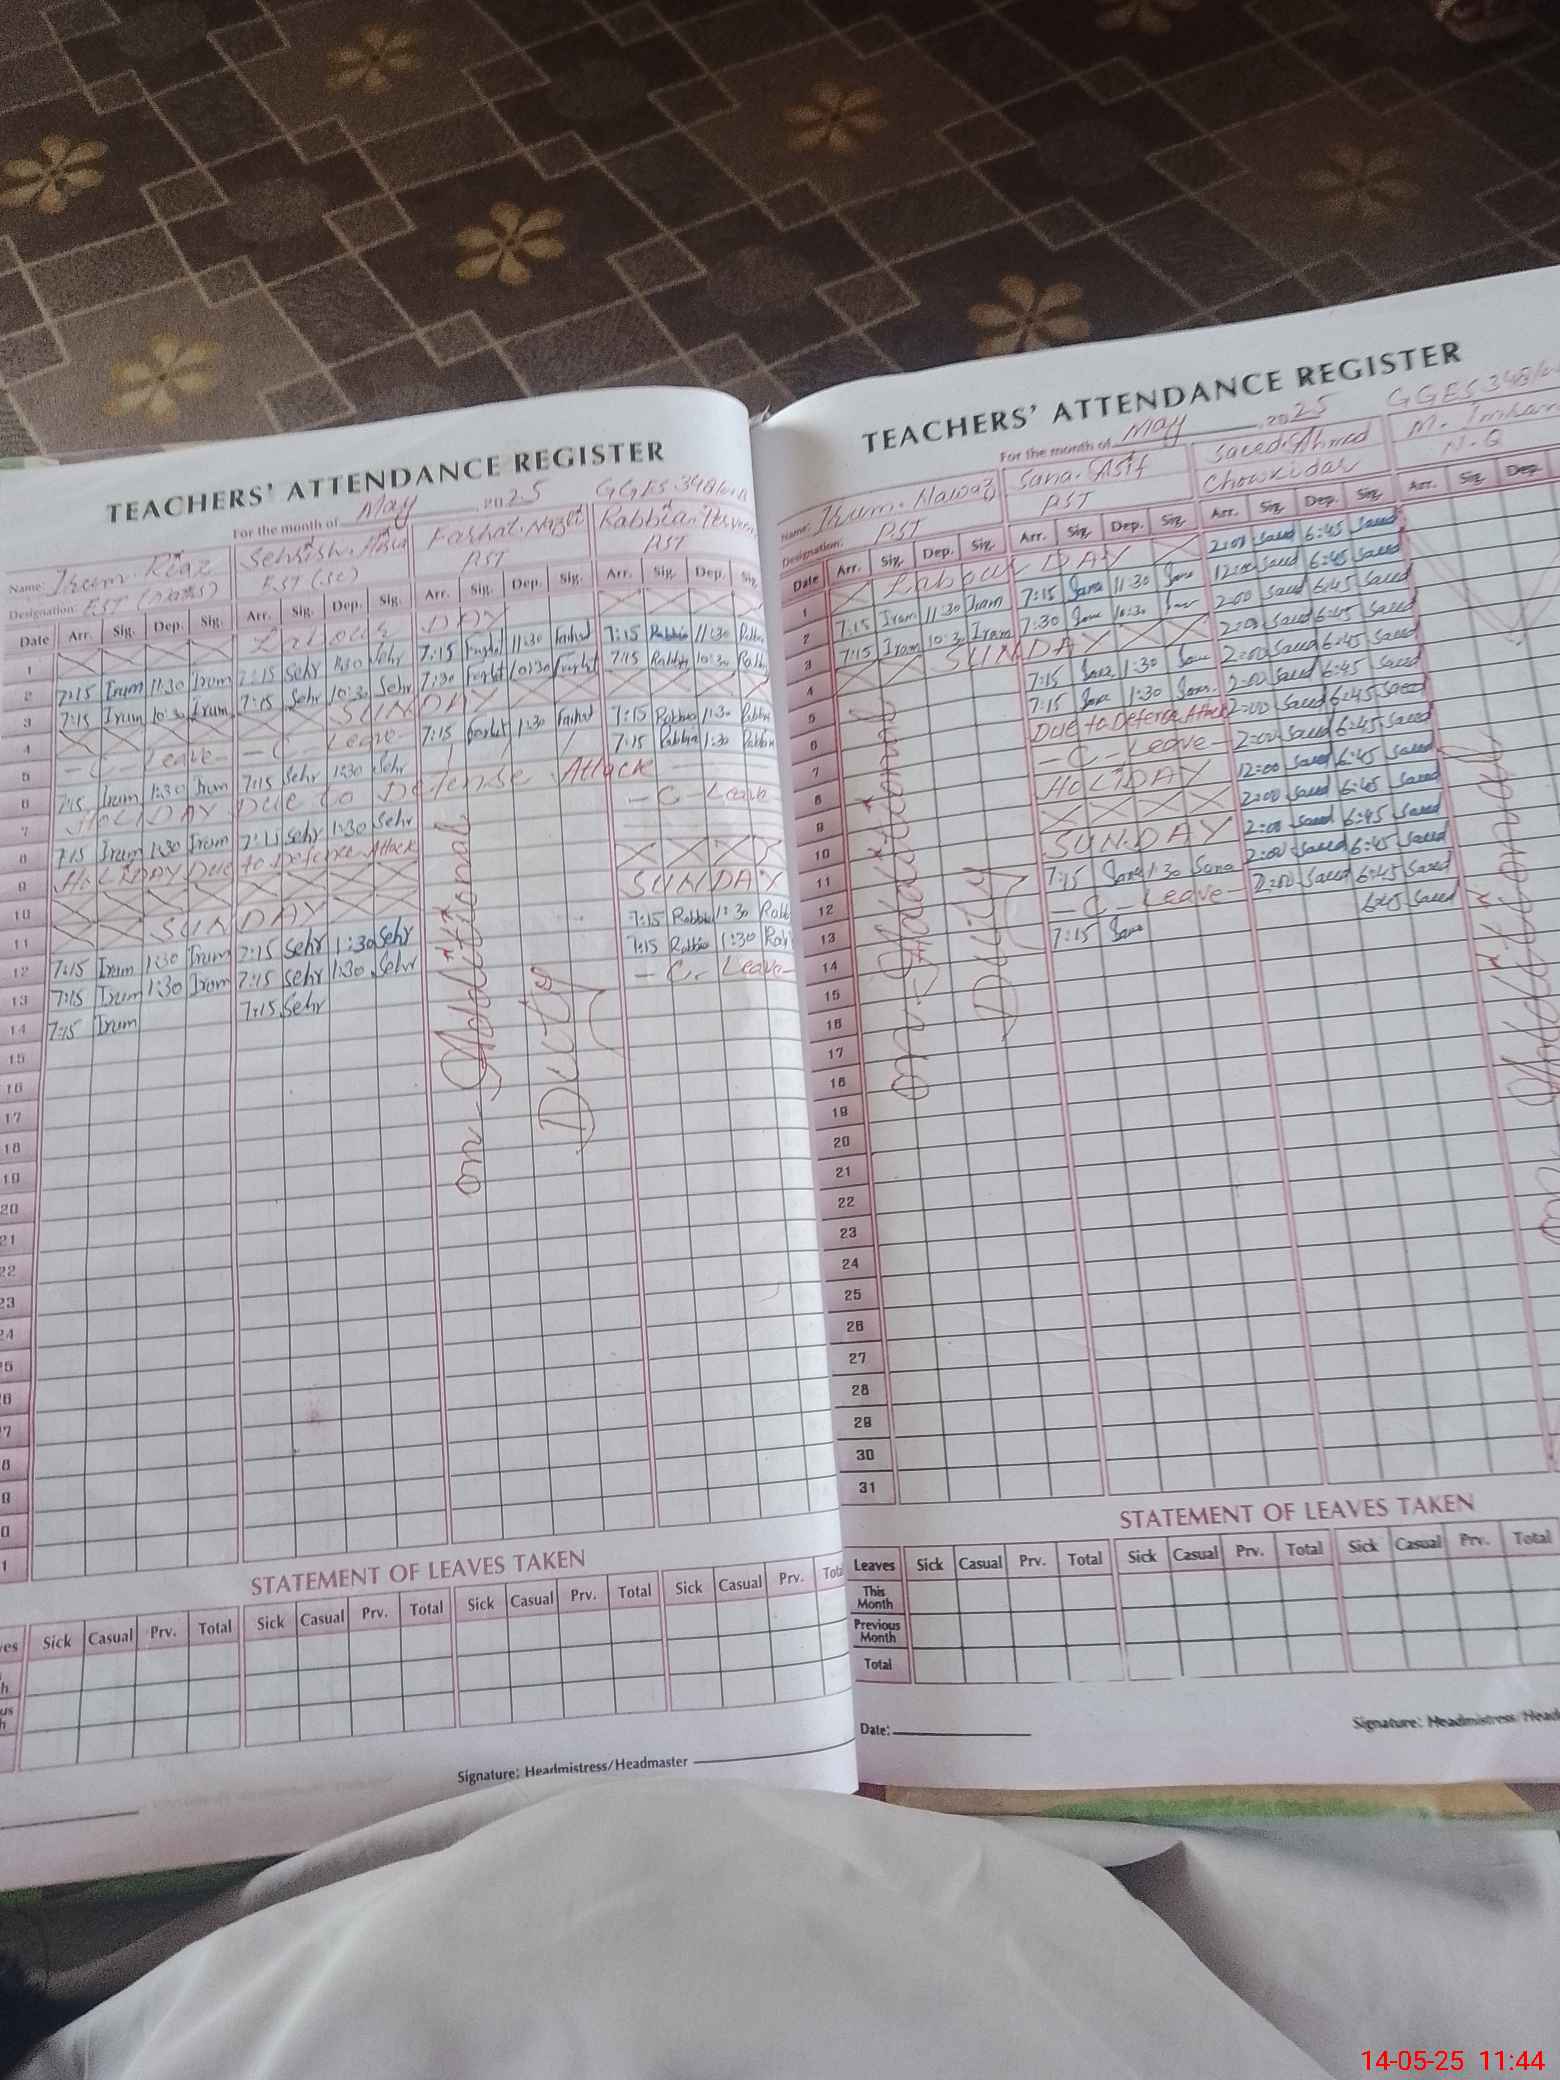 TEACHERS' ATTENDANCE REGISTER
For the month of May 2025
Name: Irum Riaz
Designation: EST
EST (Sc)
PST
PST
Date Arr. Sig. Dep. Sig. Arr. Sig. Dep. Sig. Arr. Sig. Dep. Sig. Arr. Sig. Dep. Sig
1 Labour DAY
2 7:15 Irum 11:30 Irum 7:15 Sehr 11:30 Sehr 7:15 11:30 7:15 Rabbia 11:30
3 7:15 Irum 10:30 Irum 7:15 Sehr 10:30 Sehr 7:30 10:30 7:15 Rabbia 10:30
4 SUNDAY
5 - C - Leave - - C - Leave - 7:15 1:30 7:15 Rabbia 1:30 Rabbia
6 7:15 Irum 1:30 Irum 7:15 Sehr 1:30 Sehr 7:15 Rabbia 1:30 Rabbia
7 HOLIDAY Due to Defense Attack
8 7:15 Irum 1:30 Irum 7:15 Sehr 1:30 Sehr - C - Leave
9 HOLIDAY Due to Defense Attack
10
11 SUNDAY SUNDAY
12 7:15 Irum 1:30 Irum 7:15 Sehr 1:30 Sehr 7:15 Rabbia 1:30
13 7:15 Irum 1:30 Irum 7:15 Sehr 1:30 Sehr 7:15 Rabbia 1:30
14 7:15 Irum 7:15 Sehr - C - Leave -
on Additional
Duty
15
16
17
18
19
20
21
22
23
24
STATEMENT OF LEAVES TAKEN
Sick Casual Prv. Total Sick Casual Prv. Total Sick Casual Prv. Total Sick Casual Prv.
Signature: Headmistress/Headmaster
TEACHERS' ATTENDANCE REGISTER
For the month of May 2025
Name: Irum Nawaz Sana Asif Saeed Ahmed M. Imran
Designation: PST PST Chowkidar N.Q
Date Arr. Sig. Dep. Sig. Arr. Sig. Dep. Sig. Arr. Sig. Dep. Sig. Arr. Sig. Dep.
1 Labour DAY 2:00 Saeed 6:45 Saeed
2 7:15 Irum 11:30 Irum 7:15 Sana 11:30 Sana 12:00 Saeed 6:45 Saeed
3 7:15 Irum 10:30 Irum 7:30 Sana 10:30 Sana 2:00 Saeed 6:45 Saeed
4 SUNDAY 2:00 Saeed 6:45 Saeed
5 7:15 Sana 1:30 Sana 2:00 Saeed 6:45 Saeed
6 7:15 Sana 1:30 Sana 2:00 Saeed 6:45 Saeed
7 Due to Defense Attack 2:00 Saeed 6:45 Saeed
8 - C - Leave - 2:00 Saeed 6:45 Saeed
9 HOLIDAY 12:00 Saeed 6:45 Saeed
10 2:00 Saeed 6:45 Saeed
11 SUNDAY 2:00 Saeed 6:45 Saeed
12 7:15 Sana 1:30 Sana 2:00 Saeed 6:45 Saeed
13 - C - Leave - 2:00 Saeed 6:45 Saeed
14 7:15 Sana 6:45 Saeed
on Additional
Duty
on Additional
15
16
17
18
19
20
21
22
23
24
25
26
27
28
29
30
31
STATEMENT OF LEAVES TAKEN
Leaves Sick Casual Prv. Total Sick Casual Prv. Total Sick Casual Prv. Total
This Month
Previous Month
Total
Date:
Signature: Headmistress/Head
14-05-25 11:44